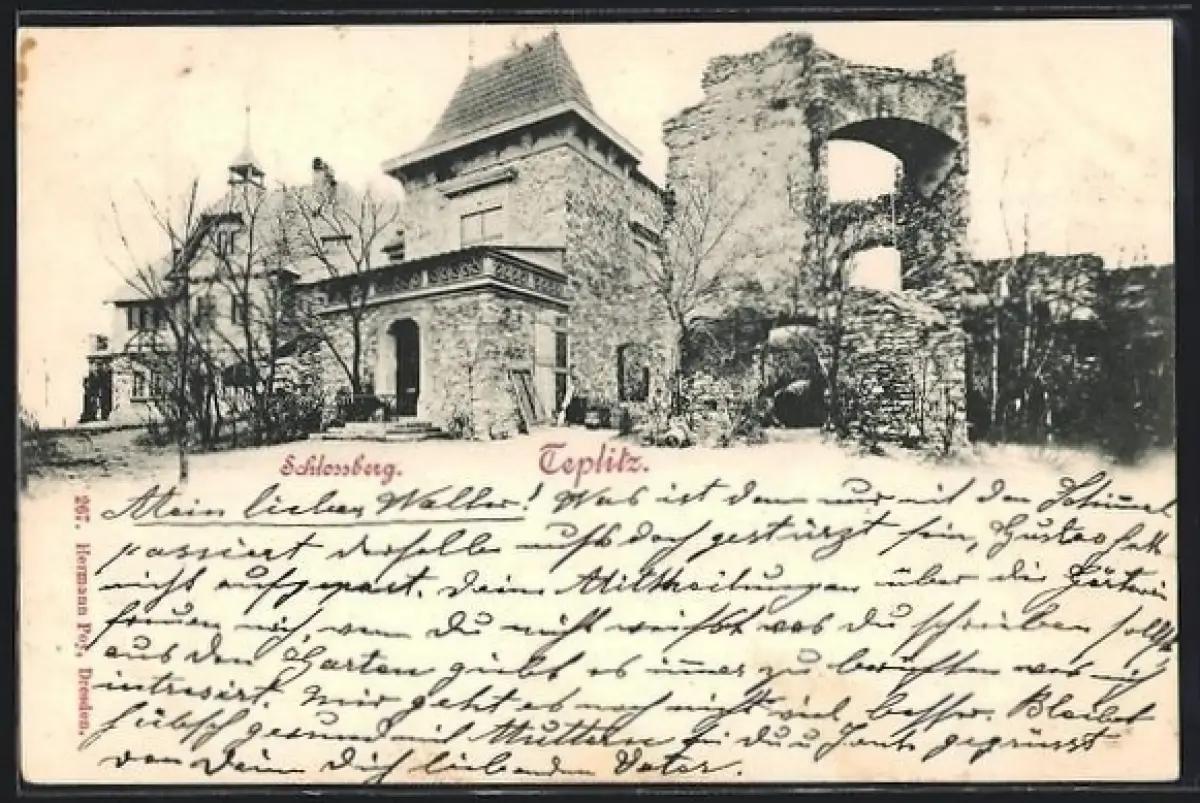 Schlossberg. Teplitz.
Mein lieber Walter! Was ist denn nur mit den Schimmel
passiert derselbe muß doch gestürzt sein, Gustav hatt
nicht aufgepasst. Deine Mittheilungen über die Gärtnerei
freuen mich, wenn du nicht weißt was du schreiben sollst
aus den Garten giebt es immer zu berichten was mich
intresirt. Mir geht es noch nicht viel besser. Bleibt
hübsch gesund mit Muttern sei Du u Hans gegrüsst
von Dein Dich liebenden Vater.
267. Hermann Poy, Dresden.